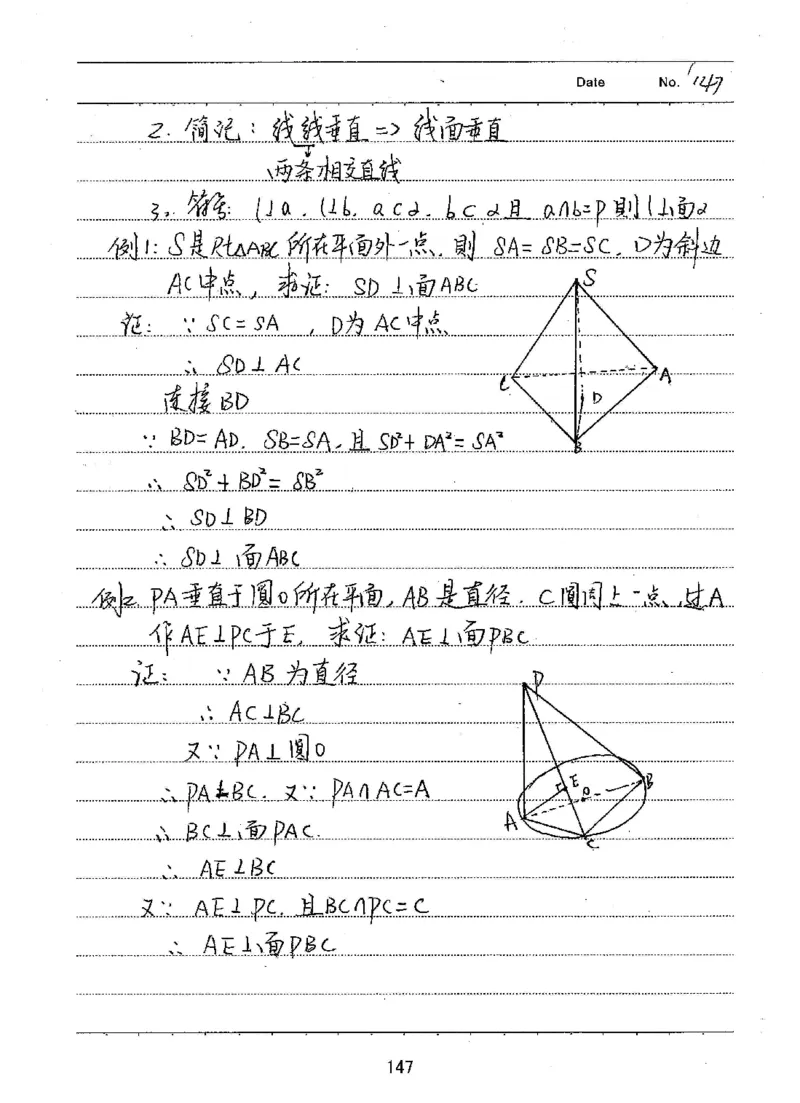 Date No. 147
2. 简记: 线线垂直 => 线面垂直
两条相交直线
3. 符号: l⊥a, l⊥b, a⊂α, b⊂α且 a∩b=P 則 l⊥面α
例1: S是Rt△ABC所在平面外一点, 則 SA=SB=SC, D为斜边
AC中点, 求证: SD⊥面ABC
证: ∵ SC=SA , D为AC中点
∴ SD⊥AC
连接BD
∵ BD=AD, SB=SA, 且 SD²+DA²=SA²
∴ SD²+BD²=SB²
∴ SD⊥BD
∴ SD⊥面ABC
S
C
A
D
B
例2 PA垂直于圆O所在平面, AB是直径, C圆周上一点, 过A
作AE⊥PC于E, 求证: AE⊥面PBC
证: ∵ AB为直径
∴ AC⊥BC
又∵ PA⊥圆O
∴ PA⊥BC, 又∵ PA∩AC=A
∴ BC⊥面PAC.
∴ AE⊥BC
又∵ AE⊥PC, 且BC∩PC=C
∴ AE⊥面PBC
P
E
B
O
A
C
147